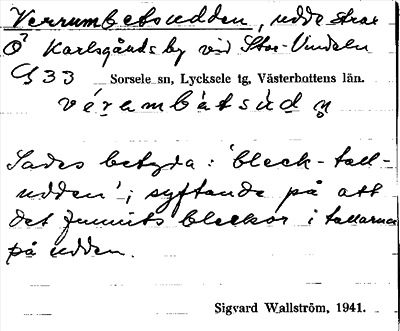 Verrumbetsudden, udde strax
Ö Karlsgårds by vid Stor-Vindeln
G 33 Sorsele sn, Lycksele tg, Västerbottens län.
vérambåtsùdn
Sades betyda: 'bleck-tall-
udden'; syftande på att
det funnits bleckor i tallarna
på udden.
Sigvard Wallström, 1941.